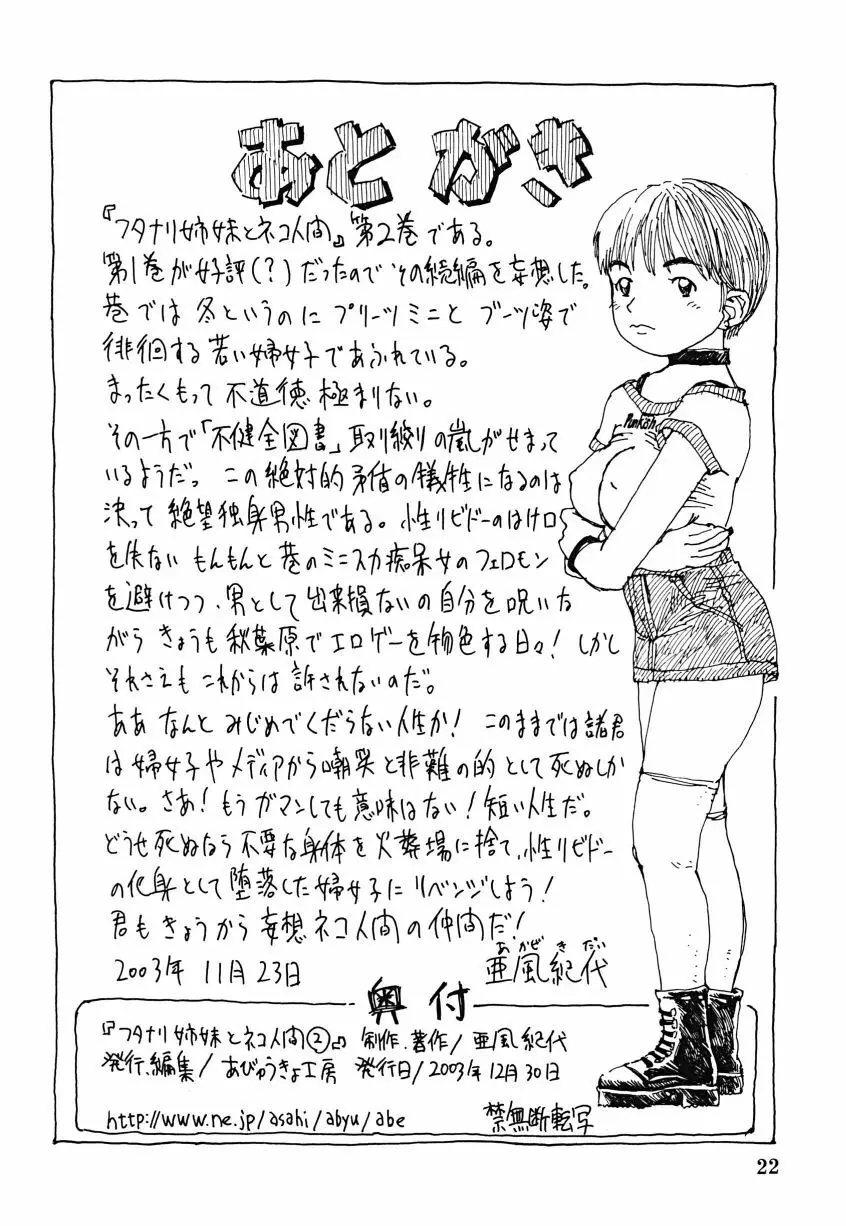 あとがき
『フタナリ姉妹とネコ人間』第2巻である。
第1巻が好評(?)だったのでその続編を妄想した。
巷では冬というのにプリーツミニとブーツ姿で
徘徊する若い婦女子であふれている。
まったくもって不道徳極まりない。
その一方で「不健全図書」取り絞りの嵐がせまって
いるようだ。この絶対的矛盾の犠牲になるのは
決って絶望独身男性である。性リビドーのはけ口
を失ない もんもんと巷のミニスカ痴呆女のフェロモン
を避けつつ、男として出来損ないの自分を呪いな
がら きょうも秋葉原でエロゲーを物色する日々! しかし
それさえもこれからは許されないのだ。
ああ なんと みじめでくだらない人生か! このままでは諸君
は婦女子やメディアから嘲笑と非難の的として死ぬしか
ない。さあ! もうガマンしても意味はない! 短い人生だ。
どうせ死ぬなら不要な身体を火葬場に捨て、性リビドー
の化身として堕落した婦女子にリベンジしよう!
君もきょうから妄想ネコ人間の仲間だ!
あかぜ きだい
2003年 11月23日 亜風紀代
奥付
『フタナリ姉妹とネコ人間②』 制作、著作/亜風紀代
発行、編集/あびゅうきょ工房 発行日/2003年12月30日
http://www.ne.jp/asahi/abyu/abe 禁無断転写
Punkish
22